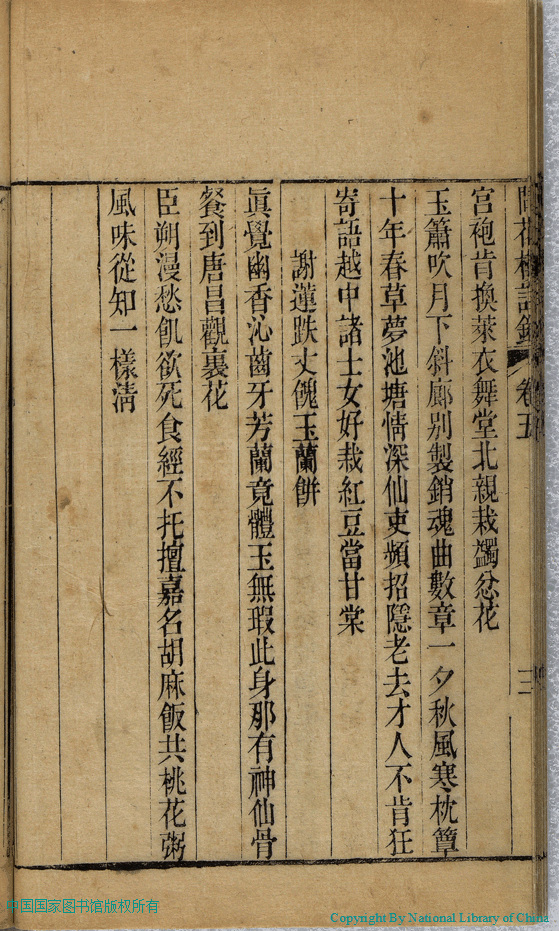 宮袍肯換萊衣舞堂北親栽蠲忿花
玉簫吹月下斜廊别製銷魂曲數章一夕秋風寒枕簟
十年春草夢池塘情深仙吏頻招隱老去才人不肯狂
寄語越中諸士女好栽紅豆當甘棠
謝蓮跌丈餽玉蘭餅
眞覺幽香沁齒牙芳蘭竟體玉無瑕此身那有神仙骨
餐到唐昌觀裏花
臣朔漫愁飢欲死食經不托擅嘉名胡麻飯共桃花粥
風味從知一樣清
卷五
三
中国国家图书馆版权所有
Copyright By National Library of China